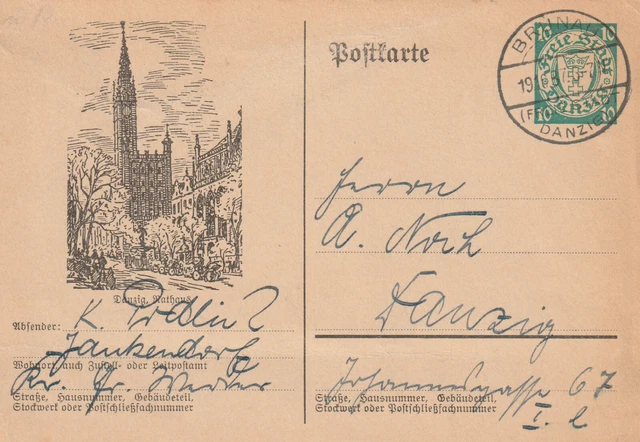 Postkarte
10 10
Freie Stadt
Danzig
10 10
BRUNAU
19.1.
DANZIG
Danzig, Rathaus
Absender: K.
Jankendorf
Wohnort, auch Zustell- oder Leitpostamt
Kr. Gr. Werder
Straße, Hausnummer, Gebäudeteil,
Stockwerk oder Postschließfachnummer
Herrn
A. Noch
Danzig
Johannesgasse 67
I. l
Straße, Hausnummer, Gebäudeteil,
Stockwerk oder Postschließfachnummer